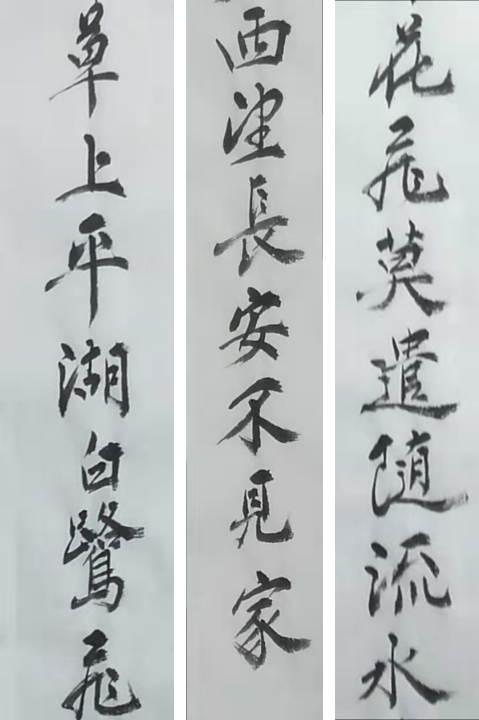 花飛莫遣随流水
西望長安不見家
草上平湖白鷺飛